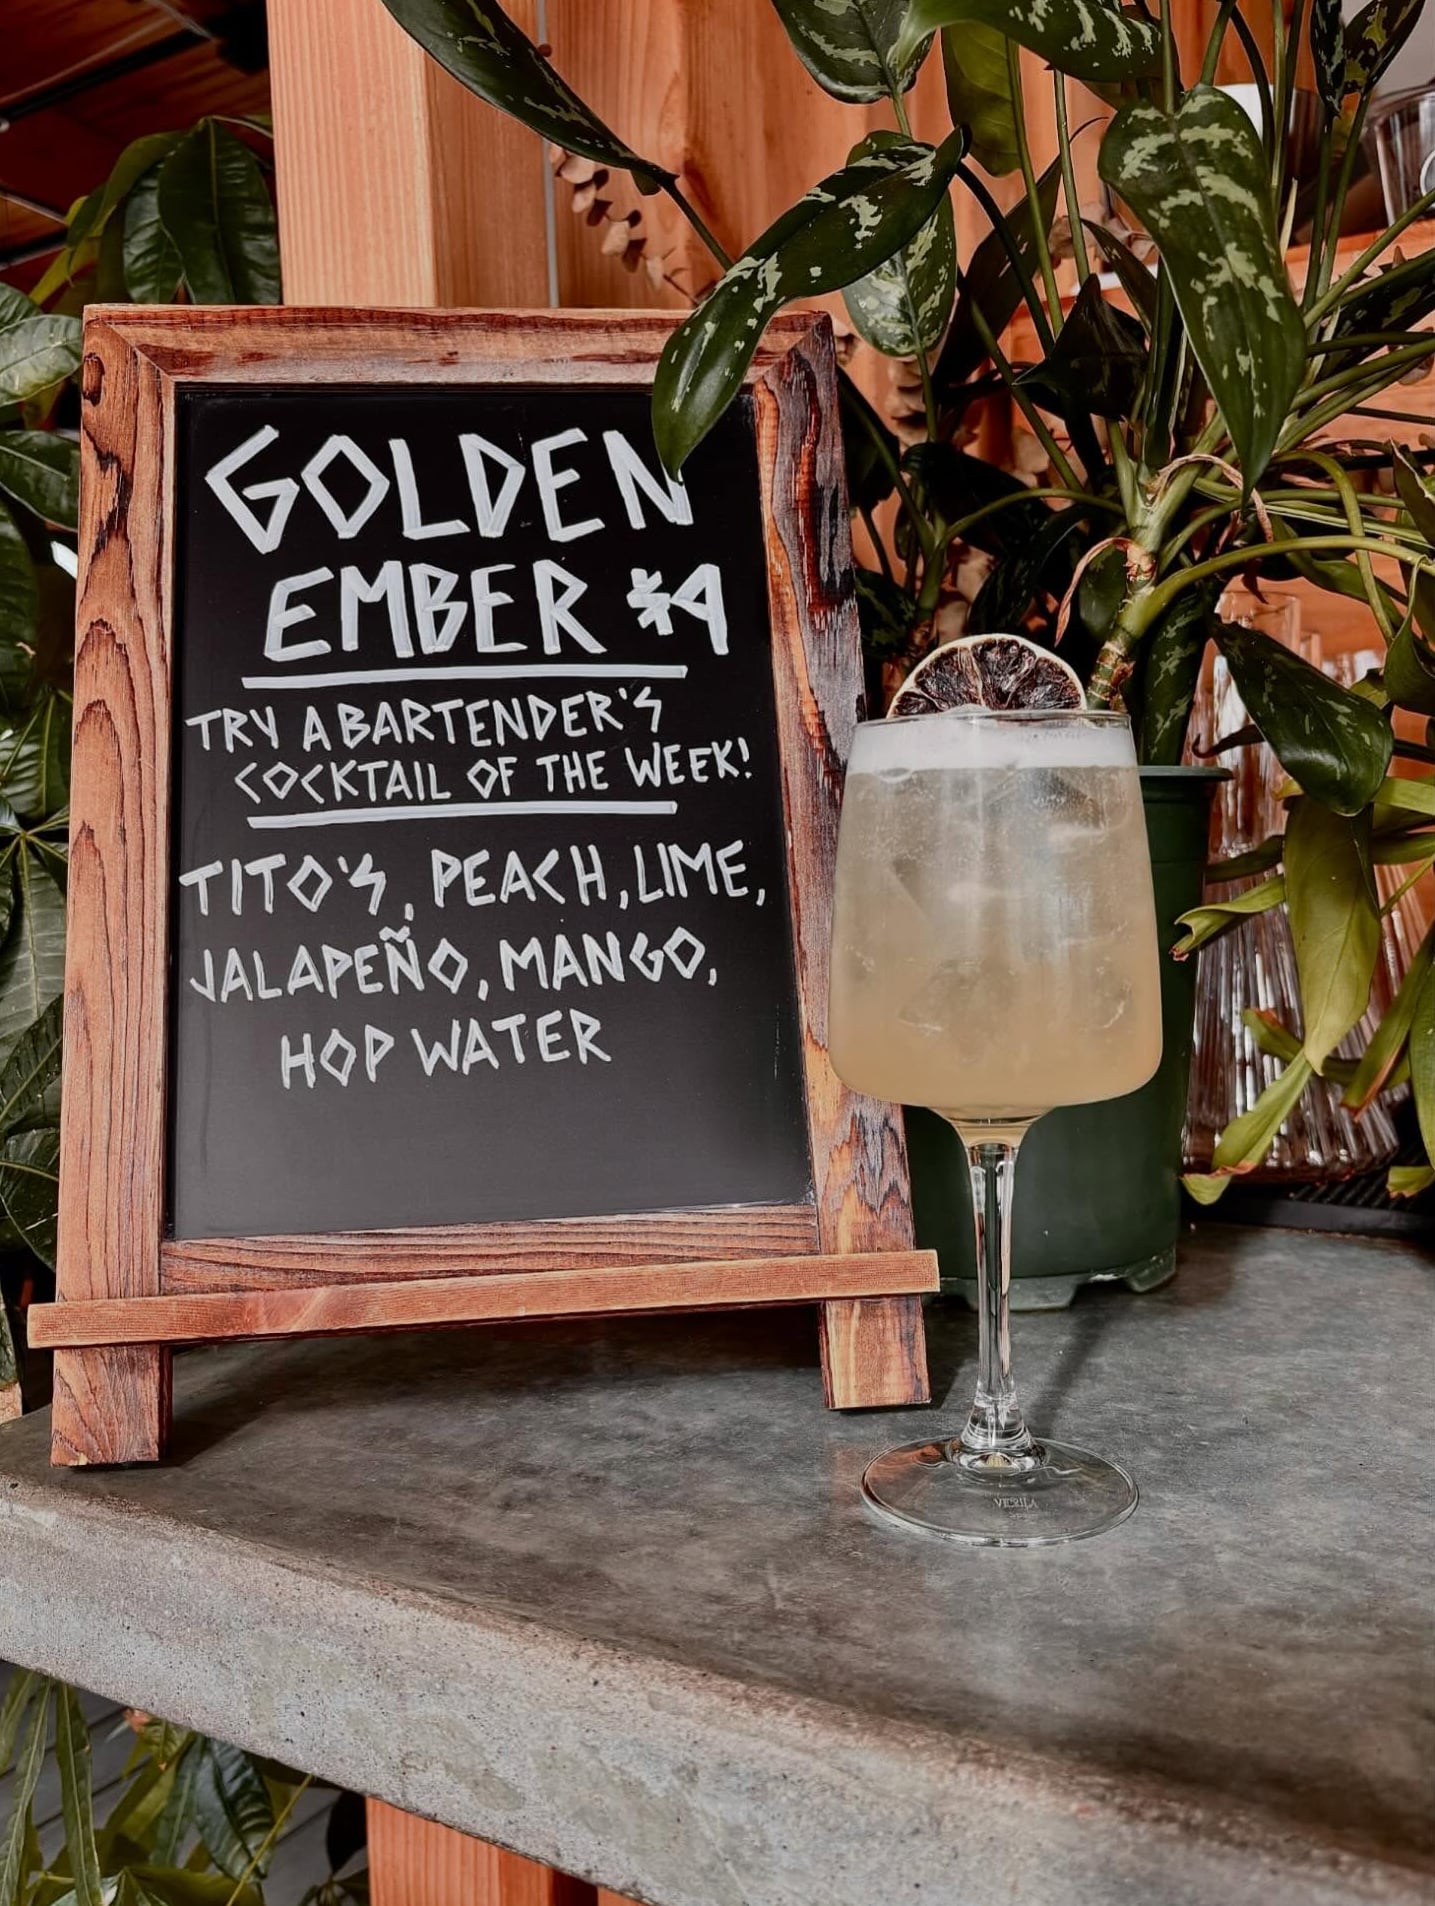 GOLDEN
EMBER #4
TRY A BARTENDER'S
COCKTAIL OF THE WEEK!
TITO'S, PEACH, LIME,
JALAPEÑO, MANGO,
HOP WATER